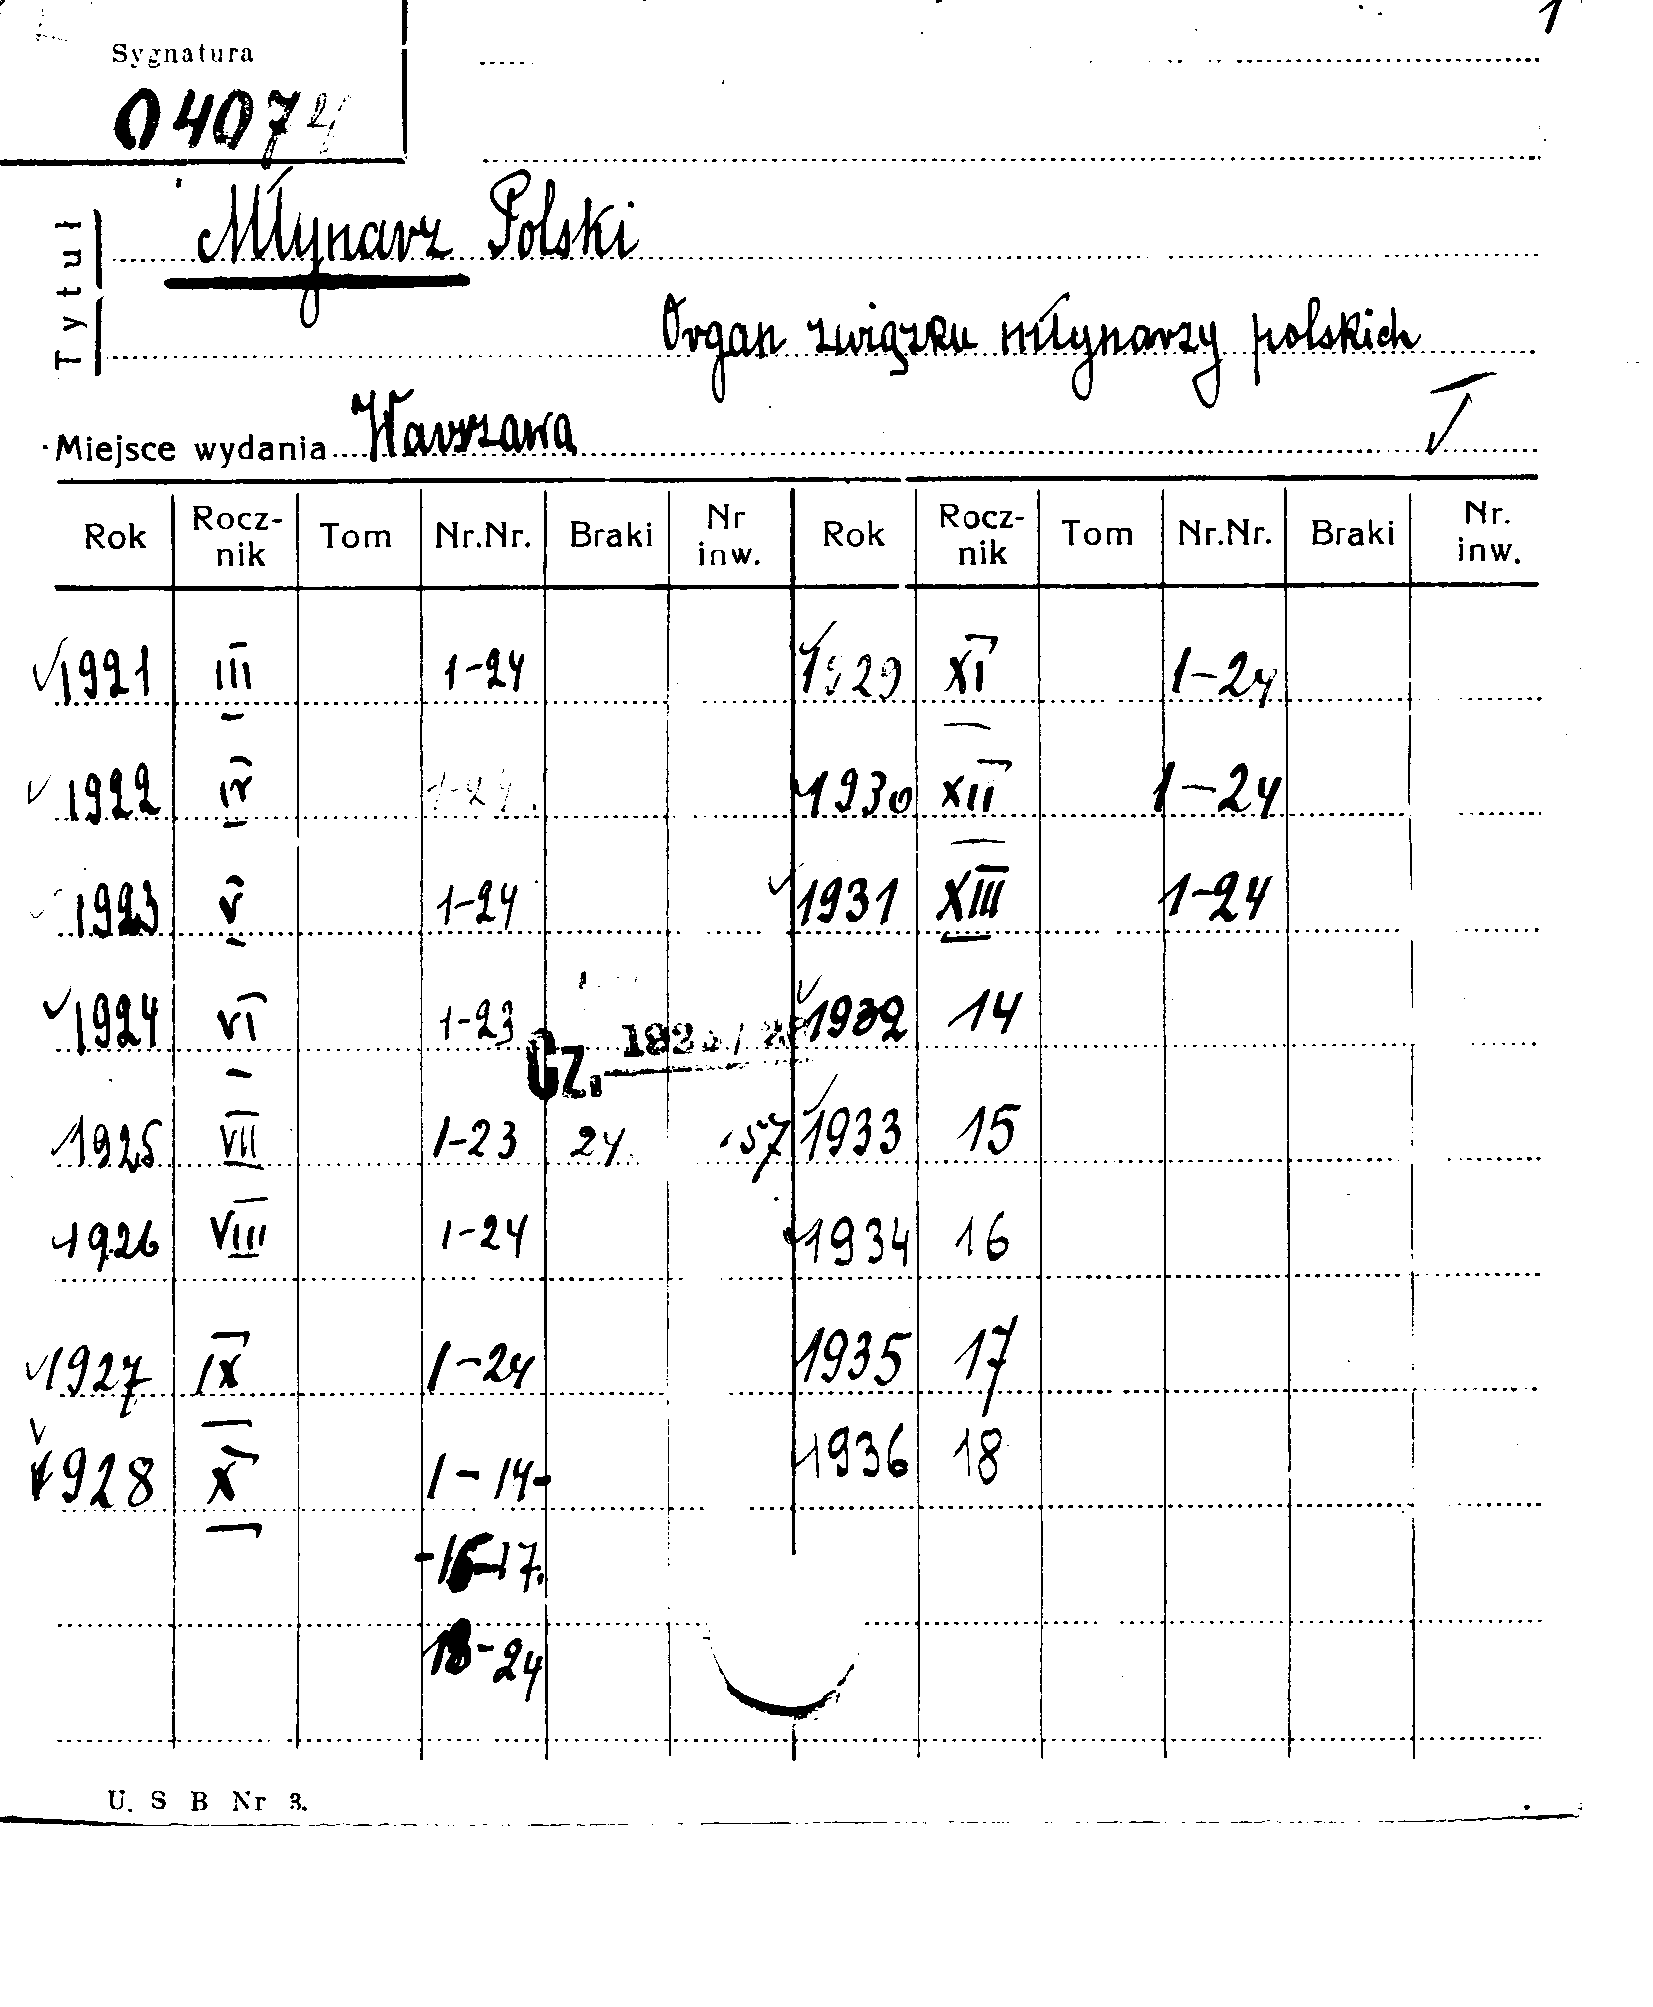 1
Sygnatura
04074
Tytuł
Młynarz Polski
Organ związku młynarzy polskich
Miejsce wydania Warszawa
I
Rok Rocz-nik Tom Nr.Nr. Braki Nr inw. Rok Rocz-nik Tom Nr.Nr. Braki Nr. inw.
1921 III 1-24 1929 XI 1-24
1922 IV 1-24. 1930 XII 1-24
1923 V 1-24 1931 XIII 1-24
1924 VI 1-23 1932 14
Cz.
1925 VII 1-23 24 57 1933 15
1926 VIII 1-24 1934 16
1927 IX 1-24 1935 17
1928 X 1-14- 1936 18
-16-17.
18-24
U. S B Nr 3.